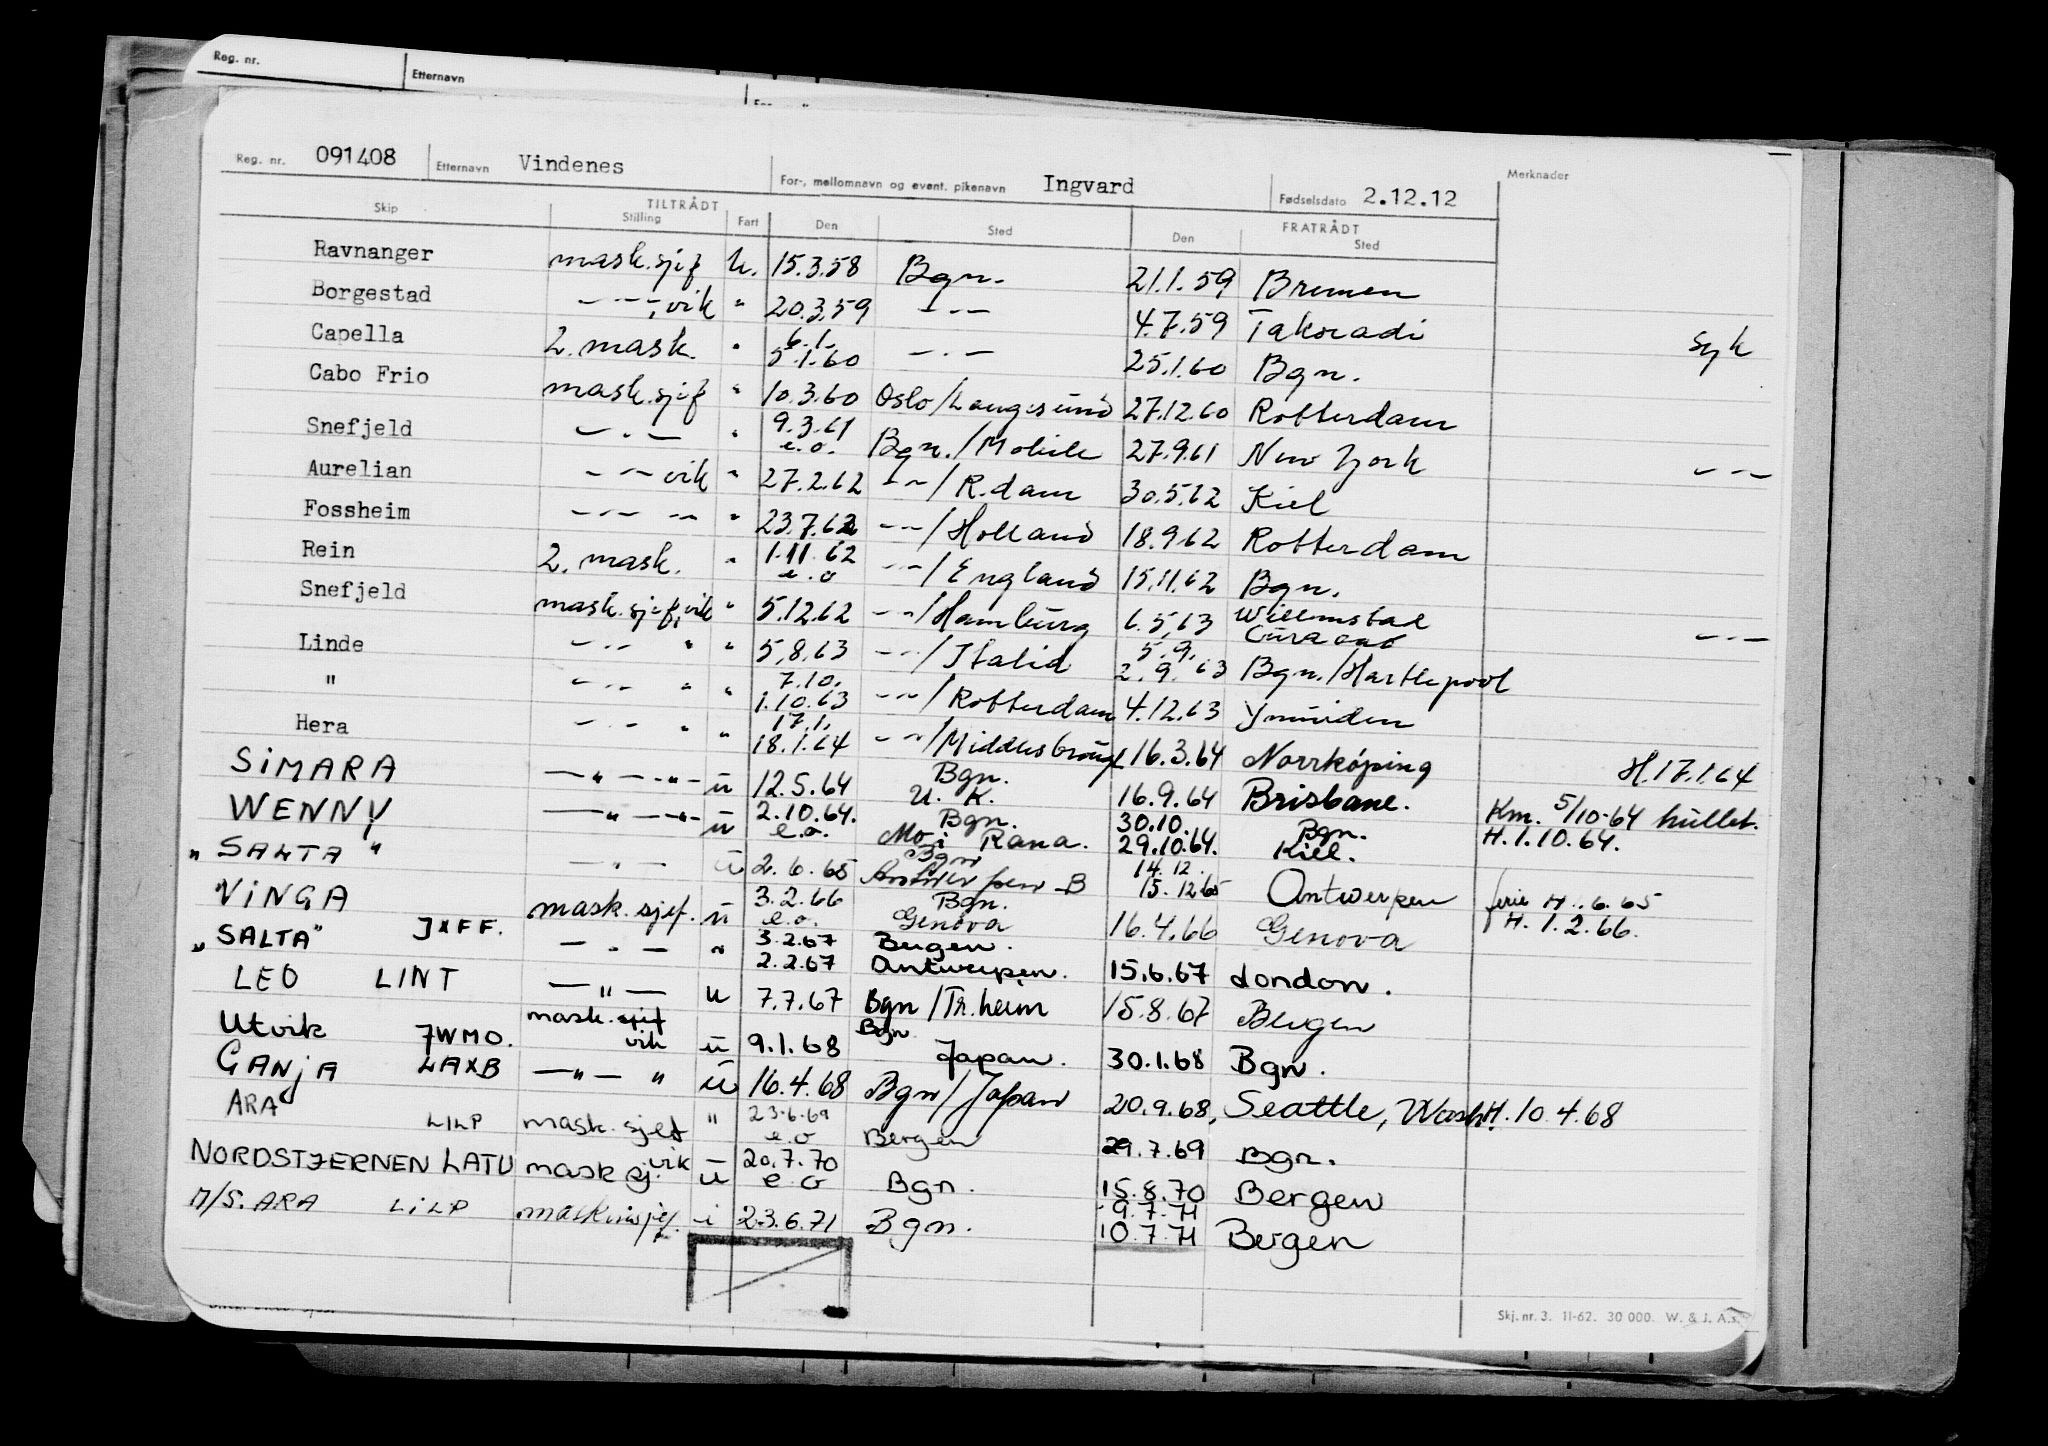 Reg. nr.
Etternavn
Reg. nr. 091408 Etternavn Vindenes For-, mellomnavn og event. pikenavn Ingvard Fødselsdato 2.12.12 Merknader
TILTRÅDT FRATRÅDT
Skip Stilling Fart Den Sted Den Sted
Ravnanger mask.sjef u. 15.3.58 Bgn. 21.1.59 Bremen
Borgestad — - —, vik " 20.3.59 — - — 4.7.59 Takoradi syk
6.1.
Capella 2. mask. " 5.1.60 — - — 25.1.60 Bgn.
Cabo Frio mask.sjef " 10.3.60 Oslo/Langesund 27.12.60 Rotterdam
9.3.61
Snefjeld — - — " e.o. Bgn./Mobile 27.9.61 New York — - —
Aurelian — - — vik " 27.2.62 — - —/R.dam 30.5.62 Kiel
Fossheim — - — — " 23.7.62 — - —/Holland 18.9.62 Rotterdam
1.11.62
Rein 2. mask. " e.o — - —/England 15.11.62 Bgn.
Snefjeld mask.sjef, vik " 5.12.62 — - —/Hamburg 6.5.63 Willemstad
Curacao — - —
5.9.
Linde — - — " " 5.8.63 — - —/Italia 2.9.63 Bgn./Hartlepool
7.10.
" — - — " " 1.10.63 — - —/Rotterdam 4.12.63 Ymuiden
17.1.
Hera — - — " " 18.1.64 — - —/Middlesbrough 16.3.64 Norrköping H.17.1.64
Bgn.
SIMARA — " — " — u 12.5.64 U. K. 16.9.64 Brisbane. Km. 5/10-64 hullet.
2.10.64. Bgn. 30.10. Bgn.
WENNY — " — " — u e.o. Mo i Rana. 29.10.64. Kiel. H.1.10.64.
Bgn 14.12.
"SALTA" — " — u 2.6.65 15.12.65 Antwerpen ferie H. .6.65
3.2.66 Bgn.
"VINGA mask.sjef. u e.o. Genova 16.4.66 Genova H. 1.2.66.
3.2.67 Bergen.
"SALTA" JXFF. — " — " 2.2.67 Antwerpen. 15.6.67 London.
LEO LINT — " — u 7.7.67 Bgn/Tr.heim 15.8.67 Bergen
mask. sjef Bgn
Utvik JWMO. vik u 9.1.68 Japan. 30.1.68 Bgn.
GANJA LAXB — " — " u 16.4.68 Bgn/Japan 20.9.68, Seattle, Wash. H. 10.4.68
23.6.69
ARA LILP mask. sjef " e.o Bergen 29.7.69 Bgn.
vik 20.7.70
NORDSTJERNEN LATU mask sj. u e o Bgn. 15.8.70 Bergen
9.7.71
M/S. ARA LILP maskinsjef. i 23.6.71 Bgn. 10.7.71 Bergen
Skj. nr. 3. 11-62. 30 000. W. & J. A.s.